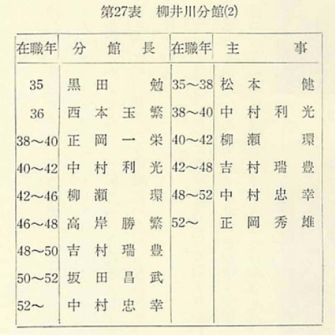 第27表 柳井川分館(2)
在職年 分館長 在職年 主事
35 黒田勉 35～38 松本健
36 西本玉繁 38～40 中村利光
38～40 正岡一栄 40～42 柳瀬環
40～42 中村利光 42～48 吉村瑞豊
42～46 柳瀬環 48～52 中村忠幸
46～48 高岸勝繁 52～ 正岡秀雄
48～50 吉村瑞豊
50～52 坂田昌武
52～ 中村忠幸